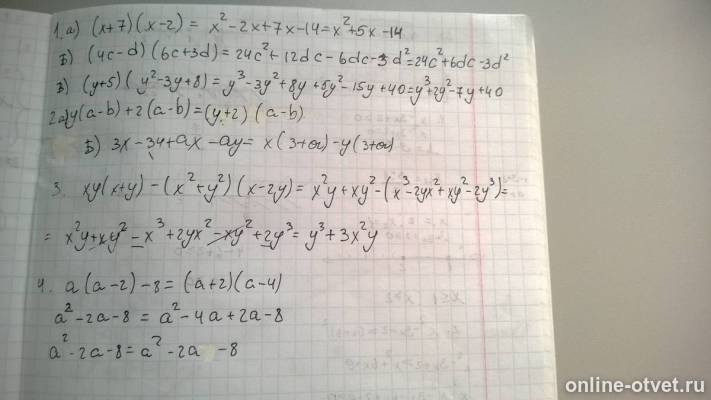 1. а) (x+7)(x-2) = x²-2x+7x-14=x²+5x-14
Б) (4c-d)(6c+3d)=24c²+12dc-6dc-3d²=24c²+6dc-3d²
в) (y+5)(y²-3y+8)=y³-3y²+8y+5y²-15y+40=y³+2y²-7y+40
2 а) y(a-b)+2(a-b)=(y+2)(a-b)
Б) 3x-3y+ax-ay= x(3+a)-y(3+a)
3. xy(x+y)-(x²+y²)(x-2y)=x²y+xy²-(x³-2yx²+xy²-2y³)=
= x²y+xy²-x³+2yx²-xy²+2y³= y³+3x²y
4. a(a-2)-8=(a+2)(a-4)
a²-2a-8 = a²-4a+2a-8
a²-2a-8=a²-2a -8
online-otvet.ru